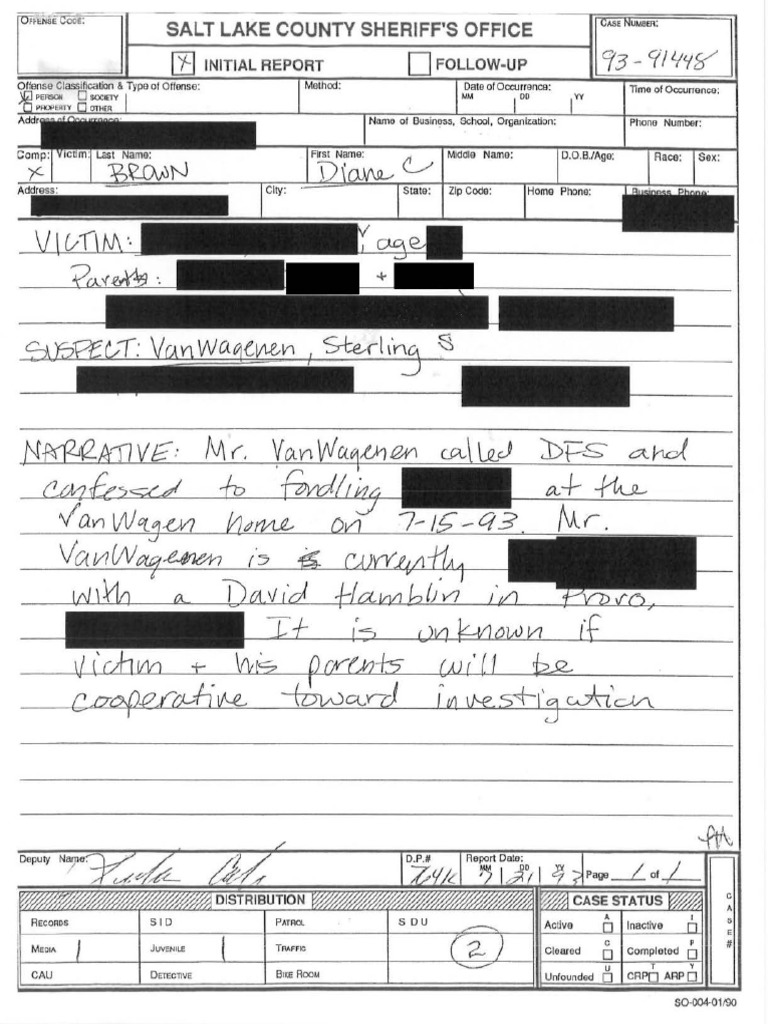 OFFENSE CODE:
SALT LAKE COUNTY SHERIFF'S OFFICE
CASE NUMBER:
X INITIAL REPORT
FOLLOW-UP
93-91448
Offense Classification & Type of Offense:
Method:
Date of Occurrence:
Time of Occurrence:
PERSON SOCIETY
MM DD YY
PROPERTY OTHER
Address of Occurrence:
Name of Business, School, Organization:
Phone Number:
Comp: Victim: Last Name:
First Name:
Middle Name:
D.O.B./Age:
Race:
Sex:
X BROWN
Diane C
Address:
City:
State:
Zip Code:
Home Phone:
Business Phone:
VICTIM: , age
Parents: +
SUSPECT: VanWagenen, Sterling S
NARRATIVE: Mr. VanWagenen called DFS and
confessed to fondling at the
VanWagen home on 7-15-93. Mr.
VanWagenen is currently
with a David Hamblin in Provo,
It is unknown if
victim + his parents will be
cooperative toward investigation
Deputy Name:
D.P.#
Report Date:
MM DD YY
Page 1 of 1
DISTRIBUTION
CASE STATUS
CASE #
RECORDS
SID
PATROL
SDU
Active A
Inactive I
MEDIA 1
JUVENILE 1
TRAFFIC
2
Cleared C
Completed P
CAU
DETECTIVE
BIKE ROOM
Unfounded U
CRP T ARP Y
SO-004-01/90